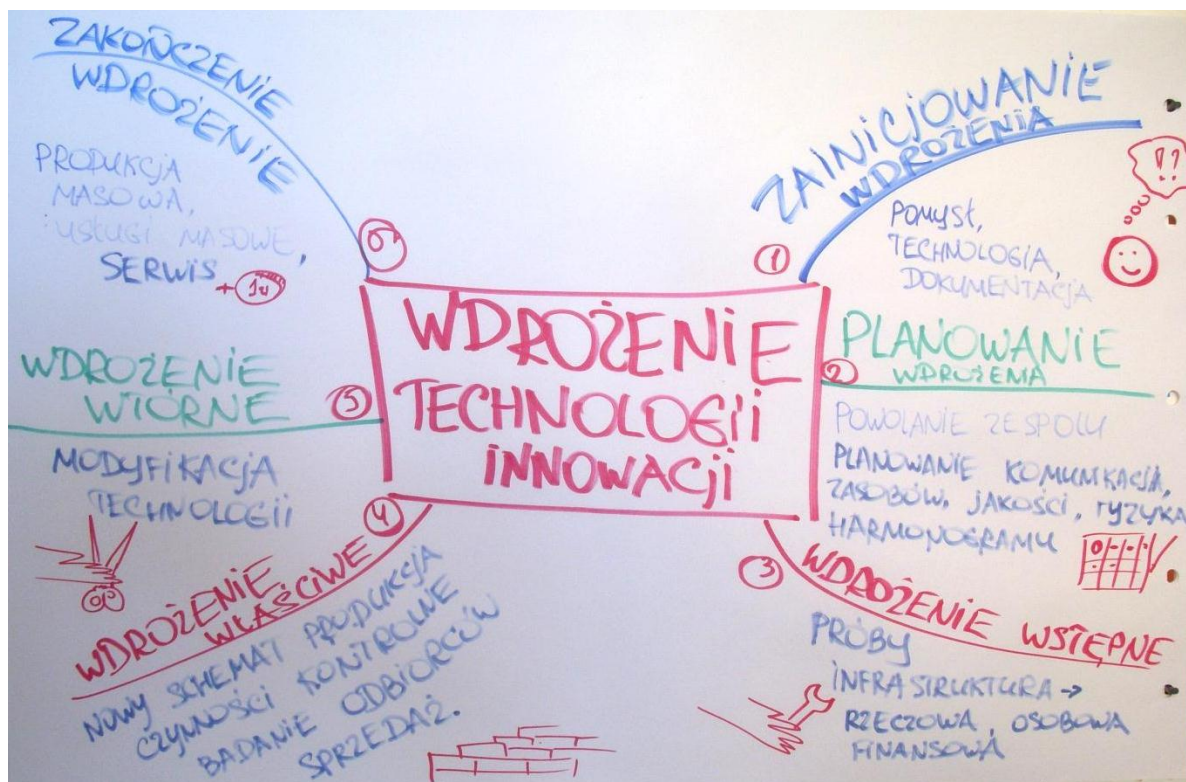 WDROŻENIE
TECHNOLOGII
INNOWACJI
1
ZAINICJOWANIE
WDROŻENIA
!!
POMYSŁ,
TECHNOLOGIA,
DOKUMENTACJA
2
PLANOWANIE
WDROŻENIA
POWOŁANIE ZESPOŁU
PLANOWANIE KOMUNIKACJA,
ZASOBÓW, JAKOŚCI, RYZYKA
HARMONOGRAMU
3
WDROŻENIE WSTĘPNE
PRÓBY
INFRASTRUKTURA →
RZECZOWA, OSOBOWA
FINANSOWA
4
WDROŻENIE
WŁAŚCIWE
NOWY SCHEMAT PRODUKCJA
CZYNNOŚCI KONTROLNE
BADANIE ODBIORCÓW
SPRZEDAŻ.
5
WDROŻENIE
WTÓRNE
MODYFIKACJA
TECHNOLOGII
ZAKOŃCZENIE
WDROŻENIE
PRODUKCJA
MASOWA,
USŁUGI MASOWE,
SERWIS